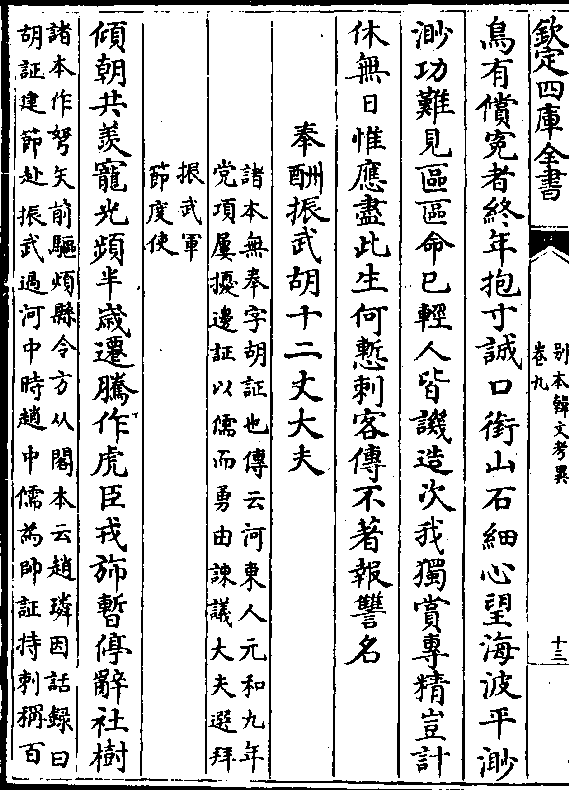 欽定四庫全書
别本韓文考異
卷九
十三
鳥有償寃者終年抱寸誠口銜山石細心望海波平渺
渺功難見區區命已輕人皆譏造次我獨賞專精豈計
休無日惟應盡此生何慙刺客傳不著報讐名
奉酬振武胡十二丈大夫
諸本無奉字胡証也傳云河東人元和九年
党項屢擾邊証以儒而勇由諫議大夫選拜
振武軍
節度使
傾朝共羨寵光頻半嵗遷騰作虎臣戎斾暫停辭社樹
諸本作弩矢前驅煩縣令方从閣本云趙璘因話録曰
胡証建節赴振武過河中時趙中儒為帥証持刺稱百